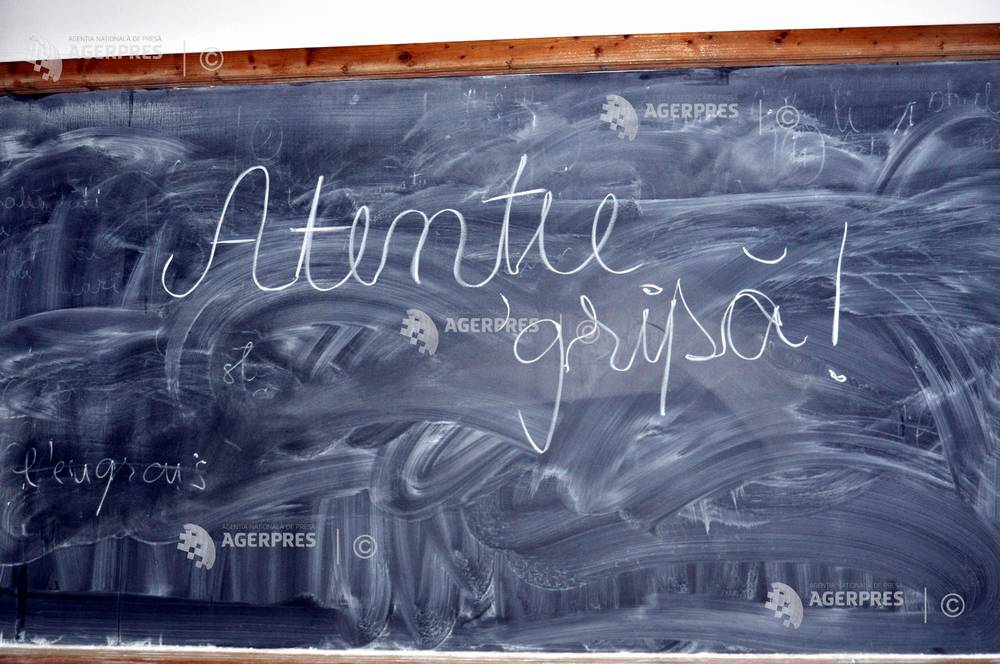 AGENȚIA NAȚIONALĂ DE PRESĂ
AGERPRES ©
AGERPRES ©
Atentie
AGERPRES ©
gripă!
st
l'engrais
AGENȚIA NAȚIONALĂ DE PRESĂ
AGERPRES ©
AGENȚIA NAȚIONALĂ DE PRESĂ
AGERPRES ©